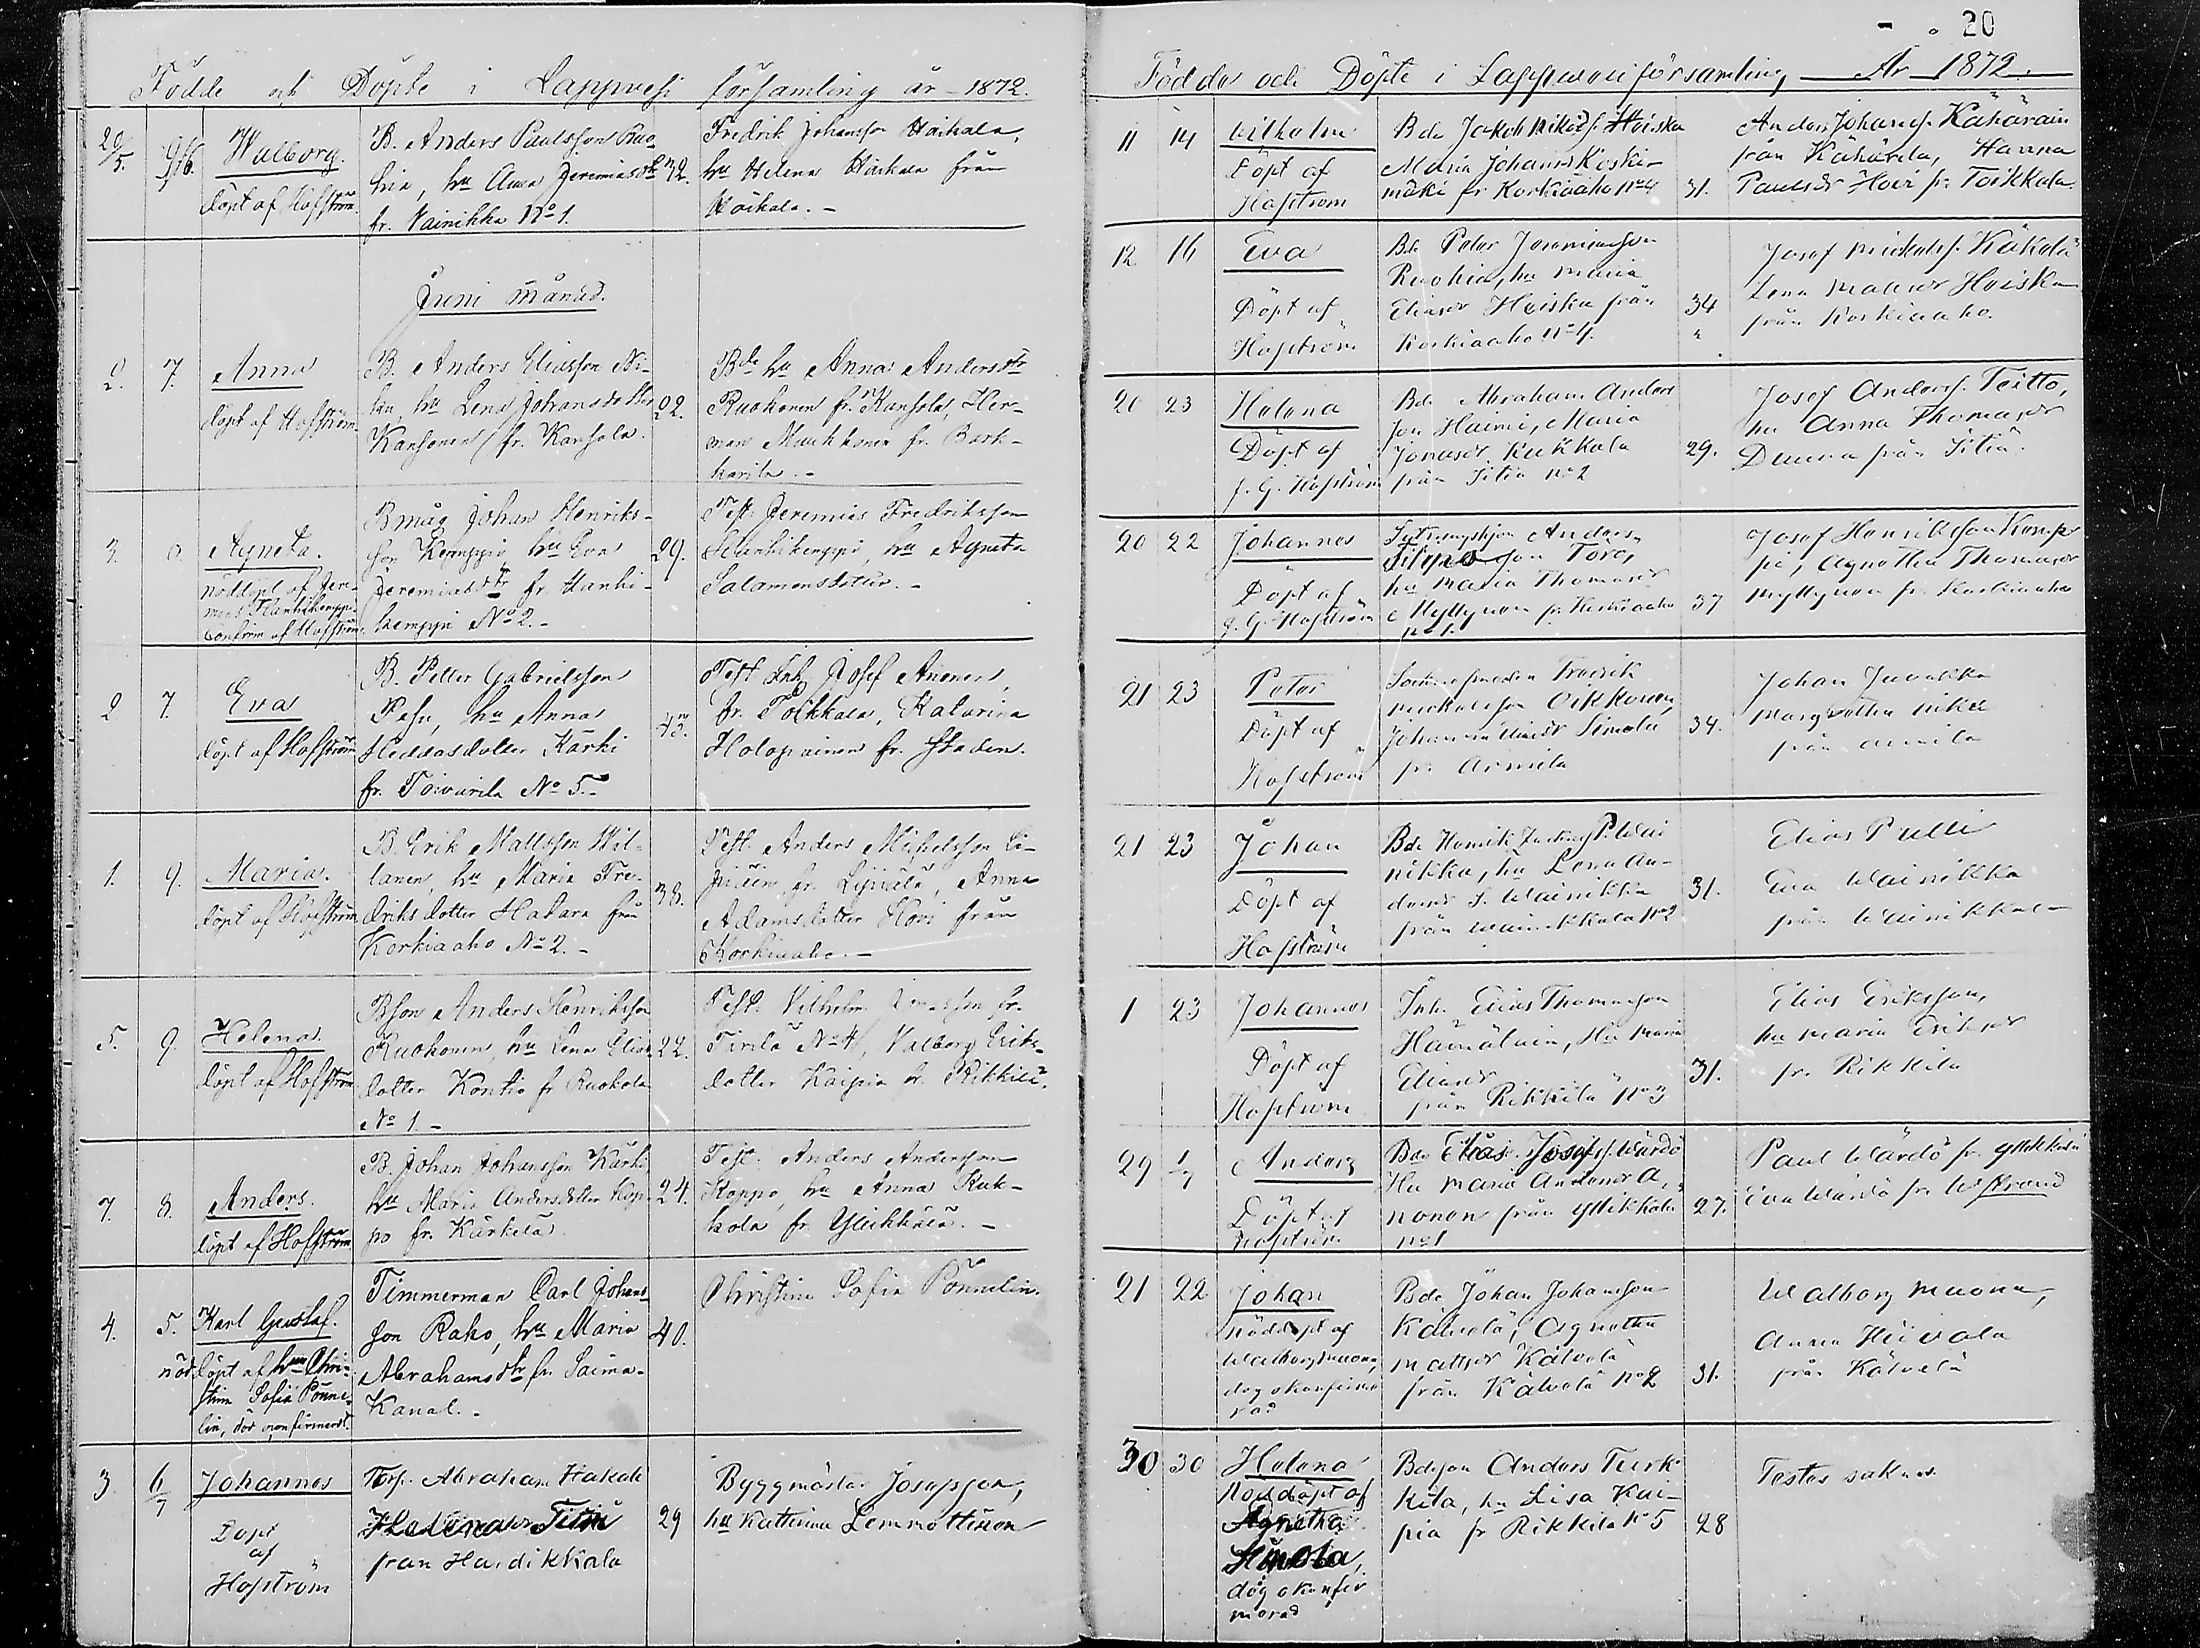 20
Födde och Döpte i Lappvesi församling år 1872.
29/5. 9/6. Walborg.
döpt af Hofström.
B. Anders Paulsson Ruo-
hia, hu Anna Jeremiasdr
fr. Vainikka No 1.
32.
Fredrik Johansson Häikälä,
hu Helena Häikälä från
Häikälä. -
Juni månad.
2. 7. Anna
döpt af Hofström.
B. Anders Eliasson
hu Lena Johansdotter
Kansonen fr. Kansola.
22.
Bde hu Anna Andersdr
Ruohonen fr. Kansola, Her-
man Muukkonen fr. Bark-
karila. -
3. Agneta.
nöddöpt af Jere-
mias Hanhikemppi
confirm af Hofström.
Bmåg Johan Henriks-
son Kemppi, hu Eva
Jeremiasdr fr. Hanhi-
kemppi No 2. -
29.
Test. Jeremias Fredriksson
Hanhikemppi, hu Agneta
Salamonsdotter. -
2 7. Eva
döpt af Hofström
B. Petter Gabrielsson
Pesu, hu Anna
Heddasdotter Kärki
fr. Toivarila No 5. -
43.
Test. Inh. Josef Anonen
fr. Toikkala, Katarina
Holopainen fr. staden.
1. 9. Maria.
döpt af Hofström
B. Erik Mattsson Wil-
lanen, hu Maria Fre-
driks dotter Hakara från
Korkiaaho No 2. -
38.
Test. Anders Michelsson
fr. Lyytälä, Anna
Adamsdotter Hovi från
Korkiaaho. -
5. 9. Helena.
döpt af Hofström
Bson Anders Henriksson
Ruohonen, hu Lena Elias
dotter Kontio fr Ruohola
No 1 -
22.
Test. Vilhelm fr.
Tirilä No 4, Valborg Eriks-
dotter Kaipia fr. Rikkilä.
7. 8. Anders.
döpt af Hofström
B. Johan Johansson Kärki
hu Maria Anders dotter Kop-
po fr. Kärkelä.
24.
Test. Anders Andersson
Koppo, hu Anna Kuk-
kola fr. Ylikkälä. -
4. 5. Karl Gustaf.
nöd döpt af hu Chri-
stina Sofia Pönne-
lin, dör confirmerat.
Timmerman Carl Johans-
son Rako, hu Maria
Abrahamsdr fr. Saima-
Kanal. -
40.
Christina Sofia Pönnelin.
3. 6/7 Johannes
Döpt
af
Hofström
Torp. Abraham Hakala
från Hardikkala
29
Byggmästar Josepsson,
hu Katharina Lemmättinen
Födda och Döpte i Lappvesi församling, År 1872.
11 14 Wilhelm
Döpt af
Hofström
Bde Jakob Mikels. Hoiska
Maria Johansdr Koski-
mäki fr Korkiaaho No 4
31.
Anders Johanss. Kähäräin
från Kähärilä, Hanna
Paulsdr Hovi fr. Toikkala
12 16 Eva
Döpt af
Hofström
Bde Peter Jeremiasson
Ruohia, hu Maria
Eliasdr Hoiska från
Korkiaaho No 4.
34
Josef Mickelss. Käkelä
Lena Mattsdr Hoiska
från Korkiaaho.
20 23 Helena
Döpt af
J. G. Hofström
Bde Abraham Anders
son Haimi, Maria
Jonasdr Kukkola
från Sitiä No 2
29.
Josef Anderss. Teitto,
hu Anna Thomasdr
från Sitiä.
20 22 Johannes
Döpt af
J. G. Hofström
Anders
Filipsson Torq
hu Maria Thomasdr
Myllynen fr. Korkiaaho
No 1.
37
Josef Henriksson Kemp
pi, Agnetha Thomasdr
Myllynen fr. Korkiaaho
21 23 Peter
Döpt af
Hofström
Sockensmeden Fredrik
Mickelsson Oikkonen,
Johanna Eliasdr Simola
fr. Armila
34.
Johan Juvakka
Margretha Mikel
från Armila
21 23 Johan
Döpt af
Hofström
Bde Henrik P. Wai
nikka, hu Lena An-
dersdr S. Wainikka
från Wainikkala No 2
31.
Elias Pulli
Eva Wainikka
från Wainikkala
1 23 Johannes
Döpt af
Hofström
Inh. Elias Thomasson
Hämäläin, Hu Maria
Eliasdr
från Rikkilä No 3
31.
Elias Eriksson,
hu Maria Eriksdr
fr. Rikkilä
29 1/7 Anders
Döpt af
Hofström
Bde Elias Josefs. Wärdö
Hu Maria Andersdr A,
nonen från Ylikkälä
No 1
27.
Paul Wärdö fr. Ylikkälä
Eva Wärdö fr. W strand
21 22 Johan
Nöddöpt af
Walborg Maona,
dog okonfirme
rad
Bde Johan Johansson
Kälvelä, Agnetha
Mattsdr Kälvelä
från Kälvelä No 2
31.
Walborg Maona,
Anna Hiivala
från Kälvelä
30 30 Helena
Nöddöpt af
Agnetha
Simola,
dog okonfir
merad
Bdeson Anders Turk-
kila, hu Lisa Kai-
pia fr Rikkilä No 5
28
Testes saknas.